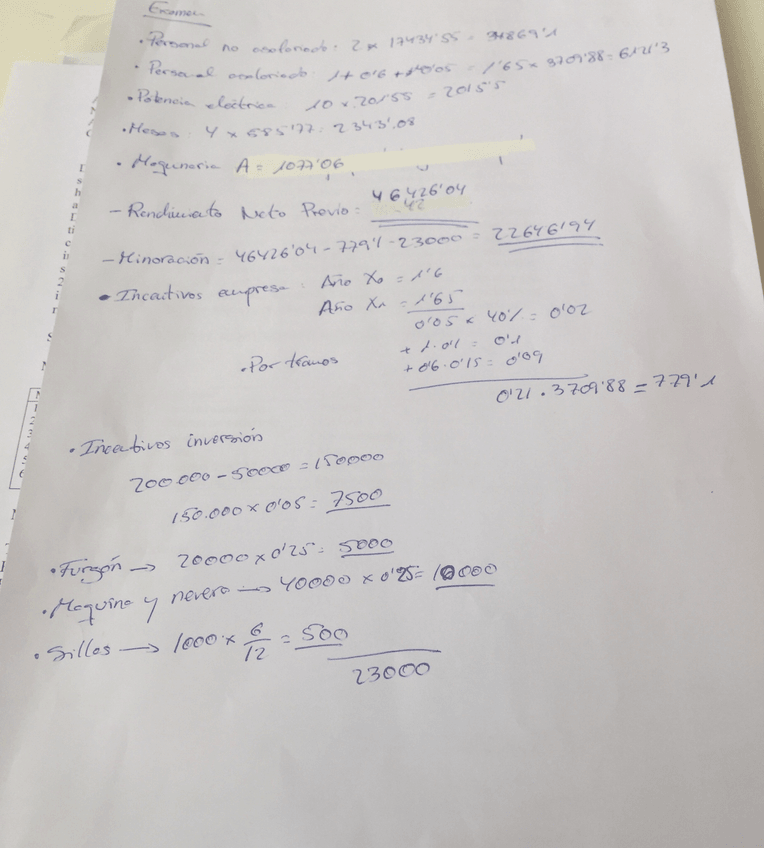 Examen
• Personal no asalariado: 2 x 17434'55 = 34869'1
• Personal asalariado: 1 + 0'6 + 0'05 = 1'65 x 3709'88 = 6121'3
• Potencia eléctrica 10 x 201'55 = 2015'5
• Mesas: 4 x 585'77 = 2343'08
• Maquinaria A = 1077'06
- Rendimiento Neto Previo: 46426'04
- Minoración = 46426'04 - 779'1 - 23000 = 22646'94
• Incentivos empresa: Año X0 = 1'6
Año X1 = 1'65
0'05 x 40% = 0'02
• Por tramos + 1 · 0'1 = 0'1
+ 0'6 · 0'15 = 0'09
0'21 · 3709'88 = 779'1
• Incentivos inversión
200.000 - 50000 = 150000
150.000 x 0'05 = 7500
• Furgón → 20000 x 0'25 = 5000
• Maquina y nevera → 40000 x 0'25 = 10000
• Sillas → 1000 x 6/12 = 500
23000